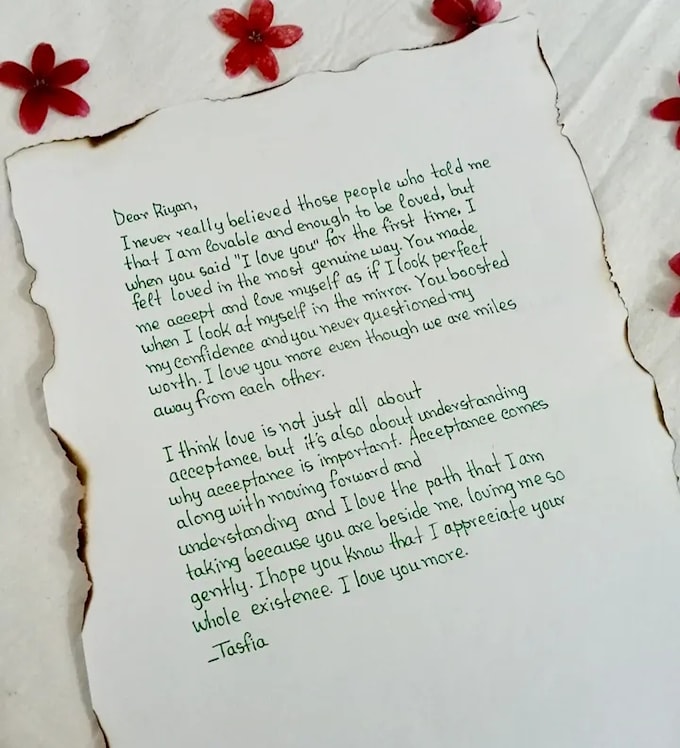 Dear Riyan,
I never really believed those people who told me
that I am lovable and enough to be loved, but
when you said "I love you" for the first time, I
felt loved in the most genuine way. You made
me accept and love myself as if I look perfect
when I look at myself in the mirror. You boosted
my confidence and you never questioned my
worth. I love you more even though we are miles
away from each other.
I think love is not just all about
acceptance, but it's also about understanding
why acceptance is important. Acceptance comes
along with moving forward and
understanding and I love the path that I am
taking because you are beside me, loving me so
gently. I hope you know that I appreciate your
whole existence. I love you more.
_Tasfia